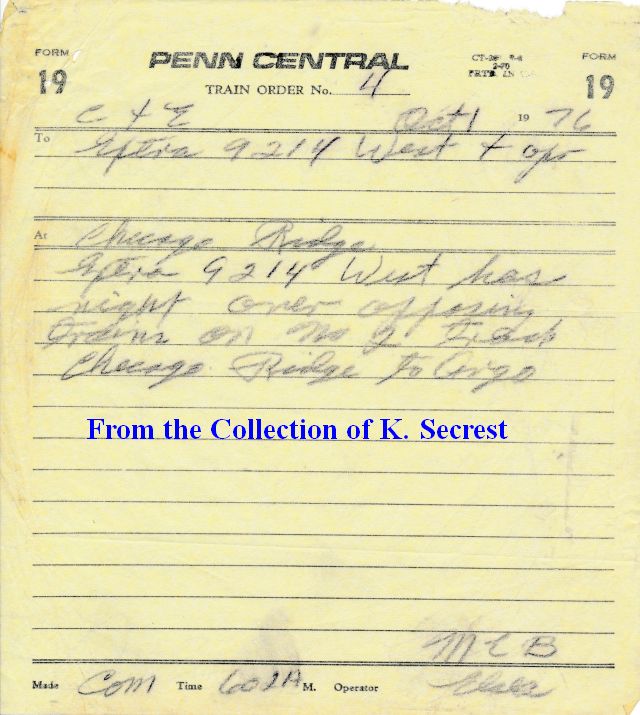 FORM PENN CENTRAL CT-
FORM
19 TRAIN ORDER No. 4 19
C & E Oct 1 19 76
To Extra 9214 West & opr
At Chicago Ridge
Extra 9214 West has
right over opposing
trains on No 2 track
Chicago Ridge to Argo
From the Collection of K. Secrest
M C B
Made Com Time 602 A M. Operator